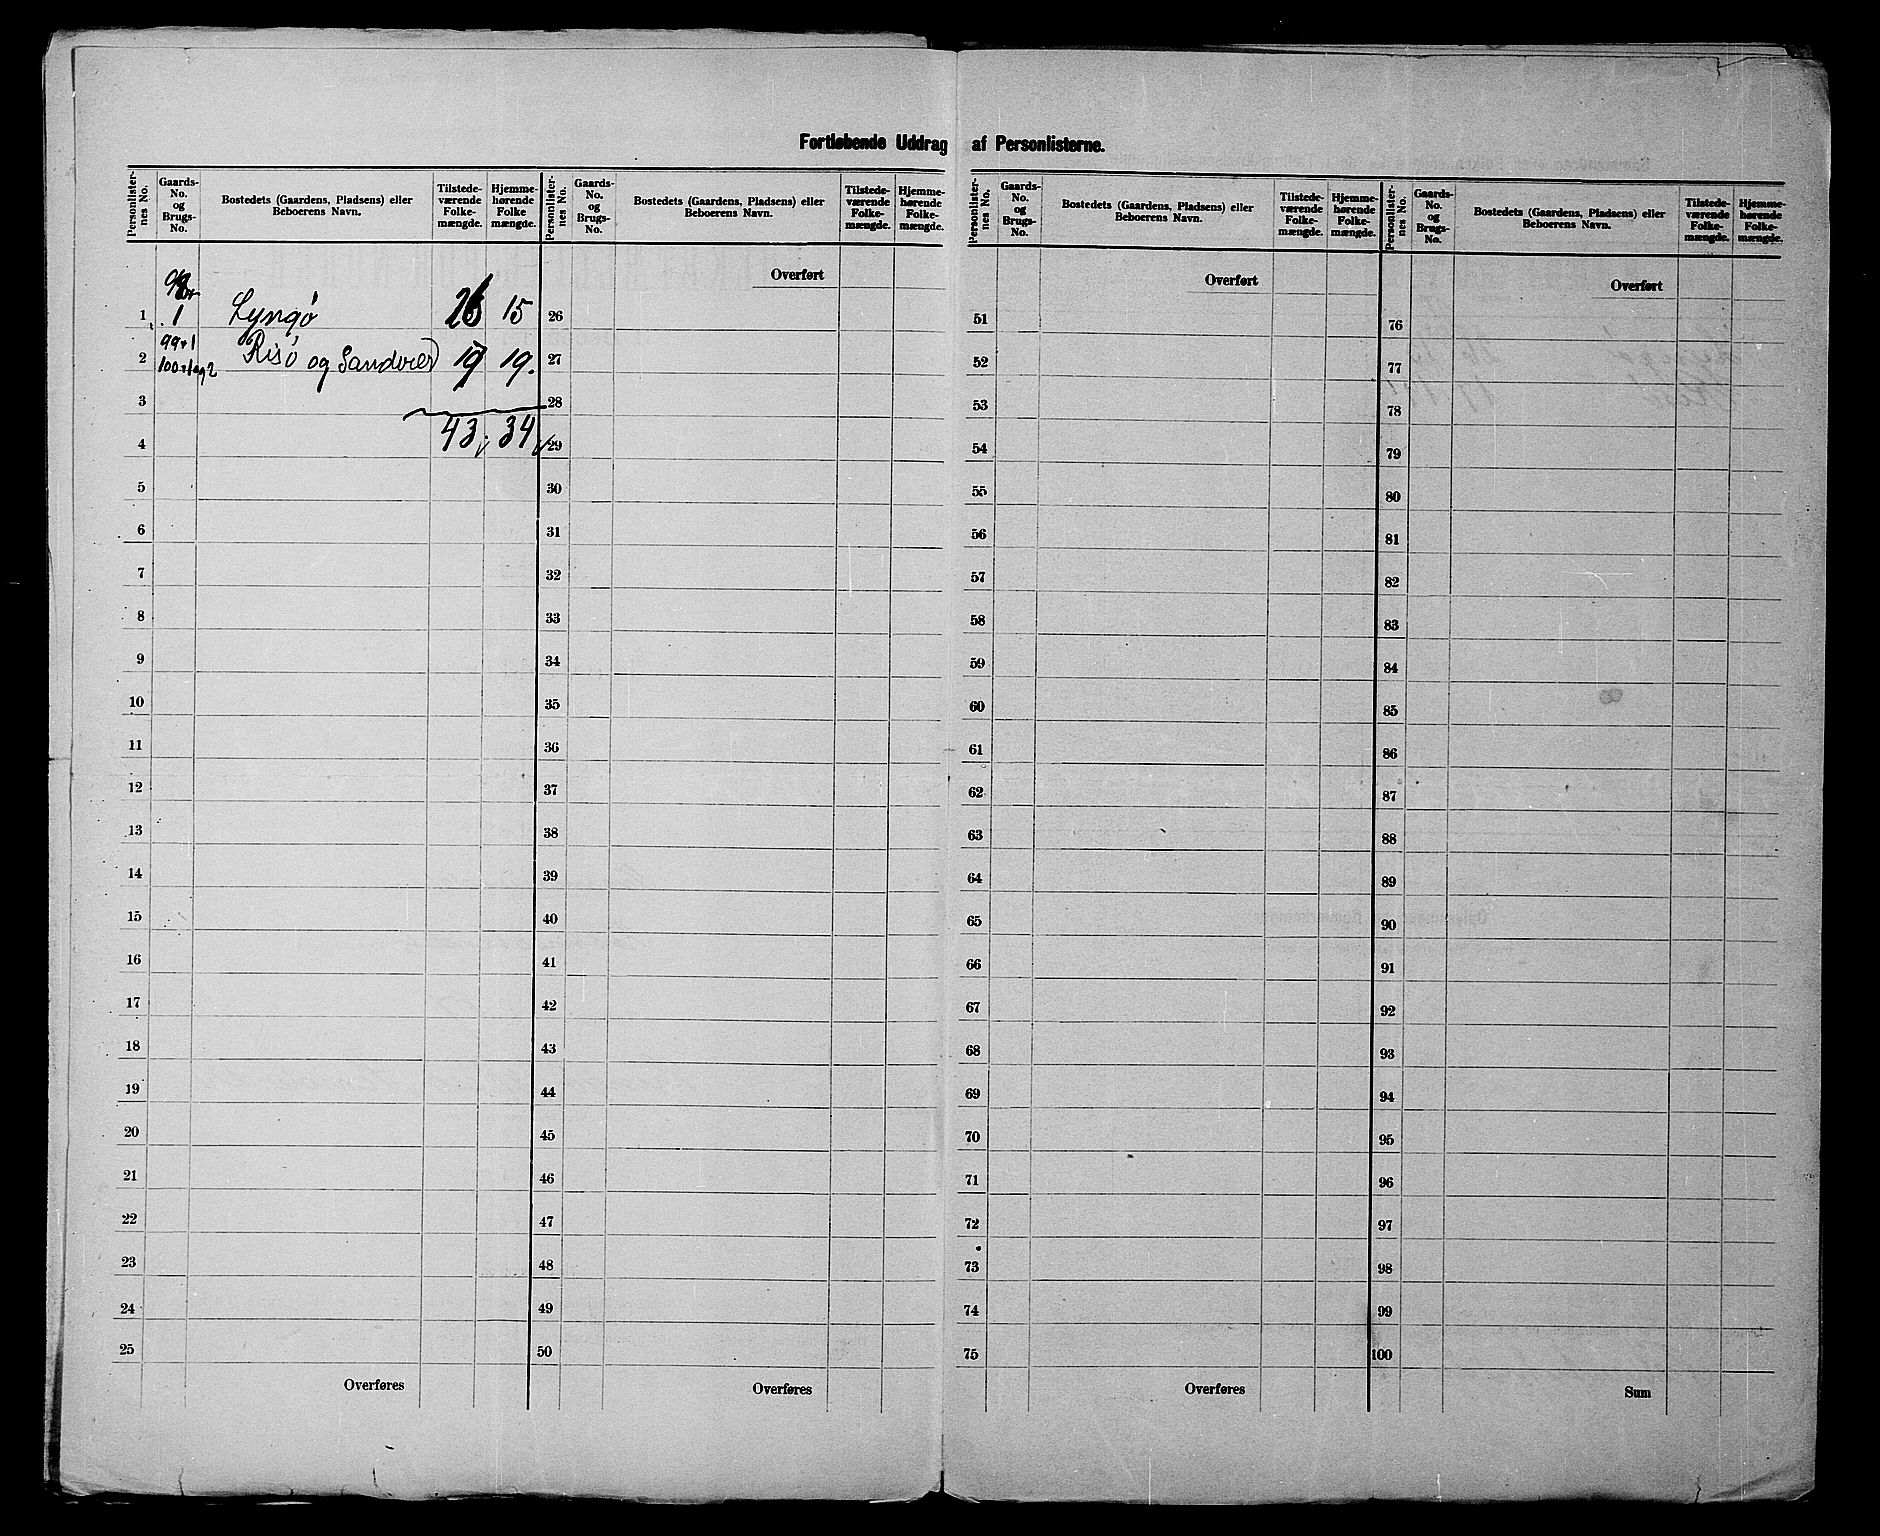 Fortløbende Uddrag af Personlisterne.
Personlister-nes No. | Gaards-No. og Brugs-No. | Bostedets (Gaardens, Pladsens) eller Beboerens Navn. | Tilstede-værende Folke-mængde. | Hjemme-hørende Folke mængde.
98
1 | 1 | Lyngö | 26 | 15
2 | 99+1 100+1 og 2 | Risö og Sandvær | 19 | 19.
3
4 | 43 | 34
5
6
7
8
9
10
11
12
13
14
15
16
17
18
19
20
21
22
23
24
25
Overføres
Personlister-nes No. | Gaards-No. og Brugs-No. | Bostedets (Gaardens, Pladsens) eller Beboerens Navn. | Tilstede-værende Folke-mængde. | Hjemme-hørende Folke-mængde.
Overført
26
27
28
29
30
31
32
33
34
35
36
37
38
39
40
41
42
43
44
45
46
47
48
49
50
Overføres
Personlister-nes No. | Gaards-No. og Brugs-No. | Bostedets (Gaardens, Pladsens) eller Beboerens Navn. | Tilstede-værende Folke-mængde. | Hjemme-hørende Folke-mængde.
Overført
51
52
53
54
55
56
57
58
59
60
61
62
63
64
65
66
67
68
69
70
71
72
73
74
75
Overføres
Personlister-nes No. | Gaards-No. og Brugs-No. | Bostedets (Gaardens, Pladsens) eller Beboerens Navn. | Tilstede-værende Folke-mængde. | Hjemme-hørende Folke-mængde.
Overført
76
77
78
79
80
81
82
83
84
85
86
87
88
89
90
91
92
93
94
95
96
97
98
99
100
Sum